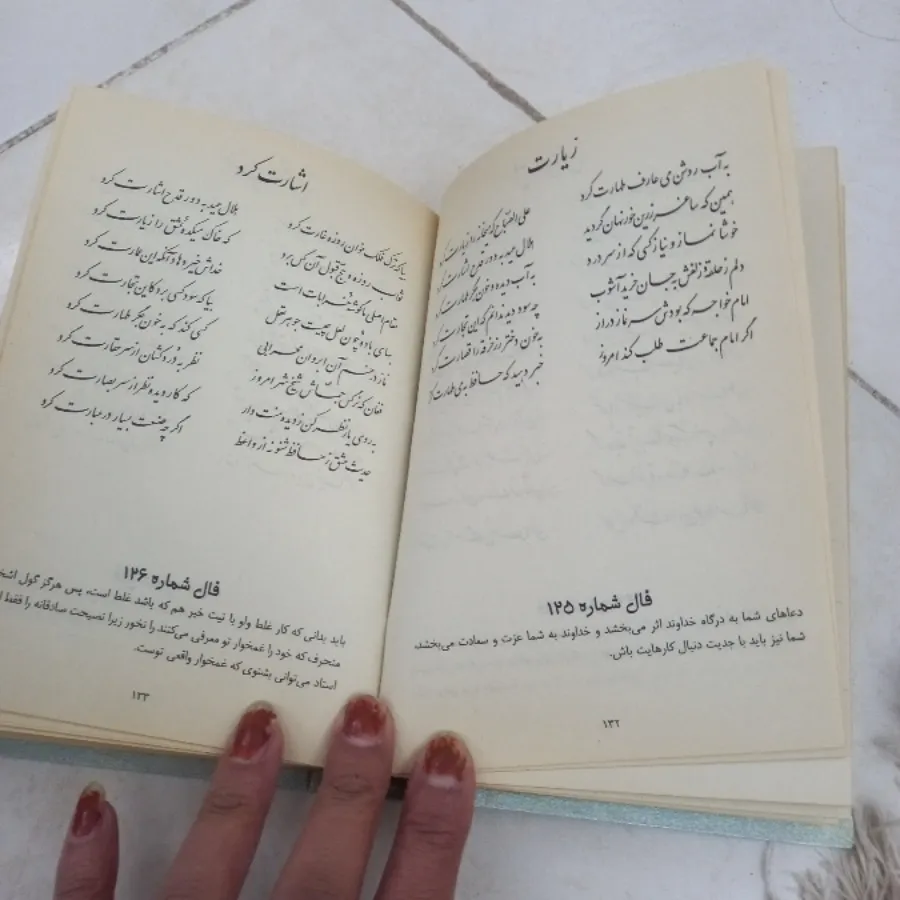 زیارت
به آب روشن می عارفی طهارت کرد علی الصباح که میخانه را زیارت کرد
همین که ساغر زرین خور نهان گردید هلال عید به دور قدح اشارت کرد
خوشا نماز و نیاز کسی که از سر درد به آب دیده و خون جگر طهارت کرد
دلم ز حلقه زلفش به جان خرید آشوب چه سود دید ندانم که این تجارت کرد
امام خواجه که بودش سر نماز دراز به خون دختر رز خرقه را قصارت کرد
اگر امام جماعت طلب کند امروز خبر دهید که حافظ به می طهارت کرد
فال شماره ۱۲۵
دعاهای شما به درگاه خداوند اثر می‌بخشد و خداوند به شما عزت و سعادت می‌بخشد،
شما نیز باید با جدیت دنبال کارهایت باش.
۱۳۲
اشارت کرد
بیا که ترک فلک خوان روزه غارت کرد هلال عید به دور قدح اشارت کرد
ثواب روزه و حج قبول آن کس برد که خاک میکده عشق را زیارت کرد
مقام اصلی ما گوشه خرابات است خداش خیر دهاد آنکه این عمارت کرد
بهای باده چون لعل چیست جوهر عقل بیا که سود کسی برد کاین تجارت کرد
نماز در خم آن ابروان محرابی کسی کند که به خون جگر طهارت کرد
فغان که نرگس جماش شیخ شهر امروز نظر به دردکشان از سر حقارت کرد
به روی یار نظر کن ز دیده منت دار که کار دیده نظر از سر بصارت کرد
حدیث عشق ز حافظ شنو نه از واعظ اگر چه صنعت بسیار در عبارت کرد
فال شماره ۱۲۶
باید بدانی که کار غلط ولو با نیت خیر هم که باشد غلط است، پس هرگز گول
منحرف که خود را غمخوار تو معرفی می‌کنند را نخور زیرا نصیحت صادقانه را فقط از
استاد می‌توانی بشنوی که غمخوار واقعی توست.
۱۳۳